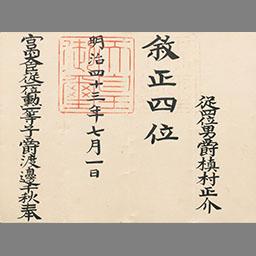 從四位男爵槙村正介
敘正四位
明治四十三年七月一日
天皇御璽
宮内大臣從二位勲一等子爵渡邊千秋奉